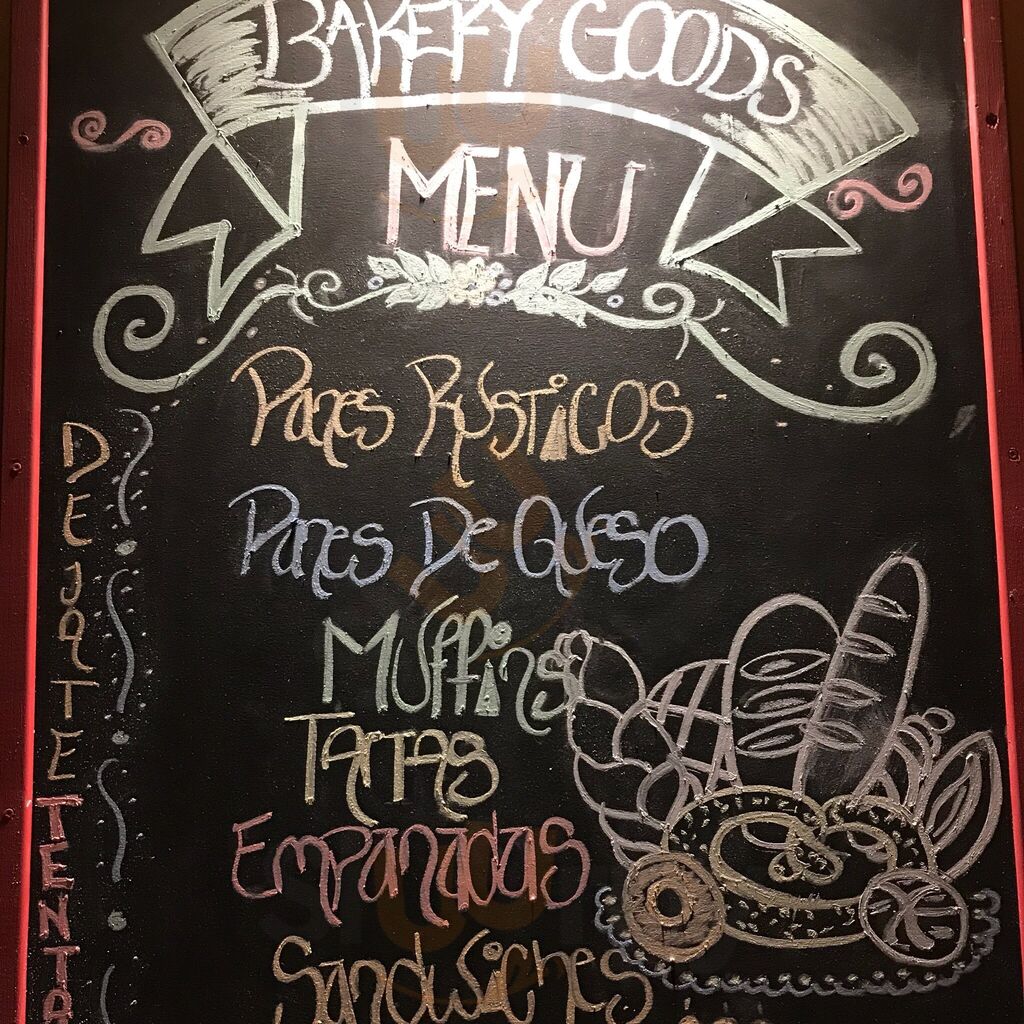 BAKERY GOODS
MENU
Panes Rústicos
Panes De Queso
Muffins
Tartas
Empanadas
Sandwiches
DEJATE TENTA